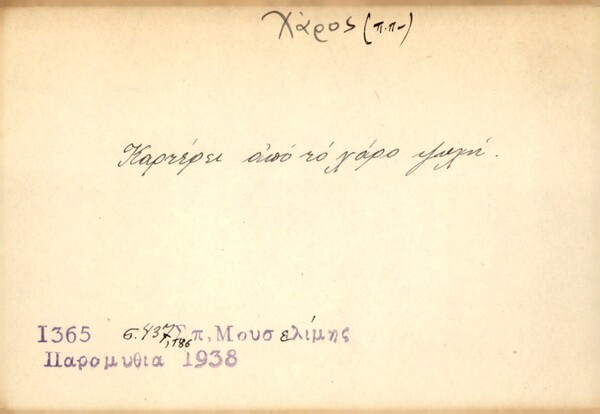 Χάρος (π.π-)
Καρτέρει από τό χάρο ψυχή.
1365 σ. 437, 1186 Σπ. Μουσελίμης
Παρομυθια 1938